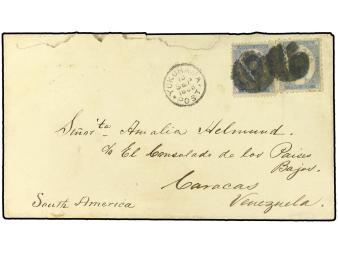 YOKOHAMA
POST
Señorta Amalia Helmund.
c/o El Consulado de los Paises
Bajos.
Caracas
South America
Venezuela.